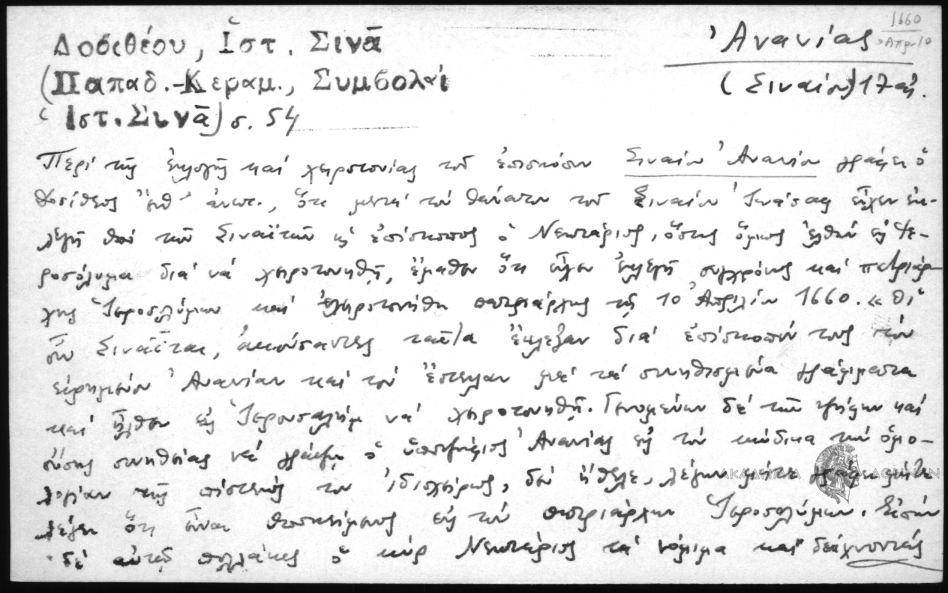 1660
Ἀπρ. 10
Δοσιθέου, Ἱστ. Σινᾶ
Ἀνανίας
(Παπαδ.-Κεραμ., Συμβολαί
(Σιναίου) 17 αἰ.
Ἱστ. Σινᾶ) σ. 54
Περί τῆς ἐκλογῆς καί χειροτονίας τοῦ ἐπισκόπου Σιναίου Ἀνανίου γράφει ὁ
Δοσίθεος ἔνθ' ἀνωτ., ὅτι μετά τόν θάνατον τοῦ Σιναίου Ἰωάσαφ εἶχεν ἐκ-
λεγῆ ὑπό τῶν Σιναϊτῶν ὡς ἐπίσκοπος ὁ Νεκτάριος, ὅστις ὅμως ἐλθών εἰς Ἱε-
ροσόλυμα διά νά χειροτονηθῆ, ἔμαθεν ὅτι εἶχεν ἐκλεγῆ συγχρόνως καί πατριάρ-
χης Ἱεροσολύμων καί ἐχειροτονήθη πατριάρχης τῆς 10 Ἀπριλίου 1660. « Οἱ
οὖν Σιναῖται, ἀκούσαντες ταῦτα ἔκλεξαν διά ἐπίσκοπόν τους τόν
εἰρημένον Ἀνανίαν καί τόν ἔστειλαν μέ τά συνηθισμένα γράμματα
καί ἦλθεν εἰς Ἱερουσαλήμ νά χειροτονηθῆ. Γενομένων δέ τῶν ψήφων καί
οὔσης συνηθείας νά γράψη ὁ ὑποψήφιος Ἀνανίας εἰς τόν κώδικα τήν ὁμο-
λογίαν τῆς πίστεώς του ἰδιοχείρως, δέν ἤθελε, λέγων μήτε γράφει μήτε
λέγει ὅτι εἶναι ὑποκείμενος εἰς τόν πατριάρχην Ἱεροσολύμων.
δέ αὐτοῦ πολλάκις ὁ κύρ Νεκτάριος τά νόμιμα καί δείχνοντάς